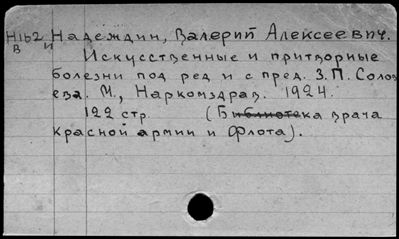 Н162 Надеждин, Валерий Алексеевич.
В и
Искусственные и притворные
болезни под ред и с пред. З.П. Солов
ева. М., Наркомздрав. 1924.
122 стр. (Библиотека врача
красной армии и флота).